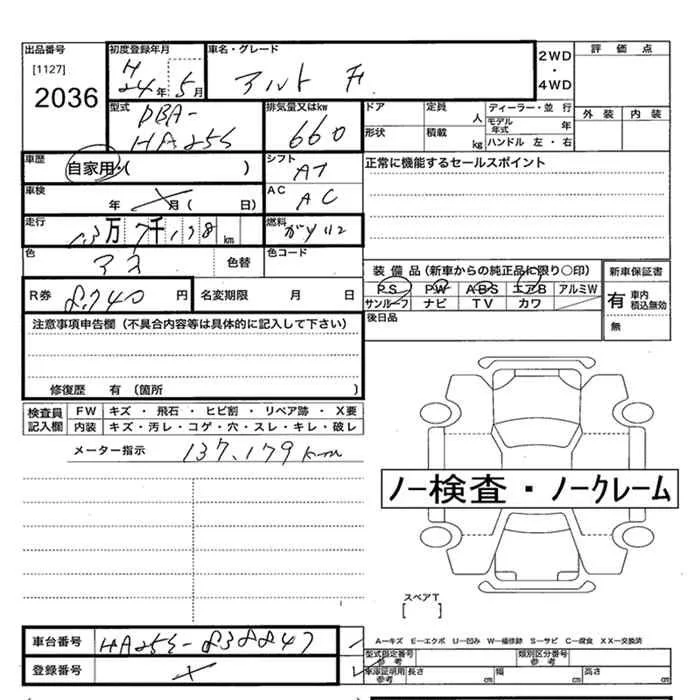 出品番号
[1127]
2036
初度登録年月
H
24年 5月
車名・グレード
アルト F
2WD
・
4WD
評価点
外装 内装
型式
DBA-
HA25S
排気量又はkw
660
ドア
定員 人
形状
積載 kg
ディーラー・並行
モデル年式 年
ハンドル 左・右
車歴
自家用・( )
シフト
AT
正常に機能するセールスポイント
車検
年 月( 日)
AC
AC
走行
13万7千178km
燃料
ガソリン
色
色替
色コード
装備品(新車からの純正品に限り○印)
PS PW ABS エアB アルミW
サンルーフ ナビ TV カワ
新車保証書
有 車内積込無効
無
R券
8,740円
名変期限 月 日
後日品
注意事項申告欄(不具合内容等は具体的に記入して下さい)
修復歴 有(箇所 )
検査員記入欄
FW キズ・飛石・ヒビ割・リペア跡・X要
内装 キズ・汚レ・コゲ・穴・スレ・キレ・破レ
メーター指示 137,179km
ノー検査・ノークレーム
スペアT
[ ]
車台番号
HA25S-838847
登録番号
A−キズ E−エクボ U−凹み W−補修跡 S−サビ C−腐食 XX−交換済
型式指定番号参考
類別区分番号参考
車庫証明用参考
長さ cm 幅 cm 高さ cm